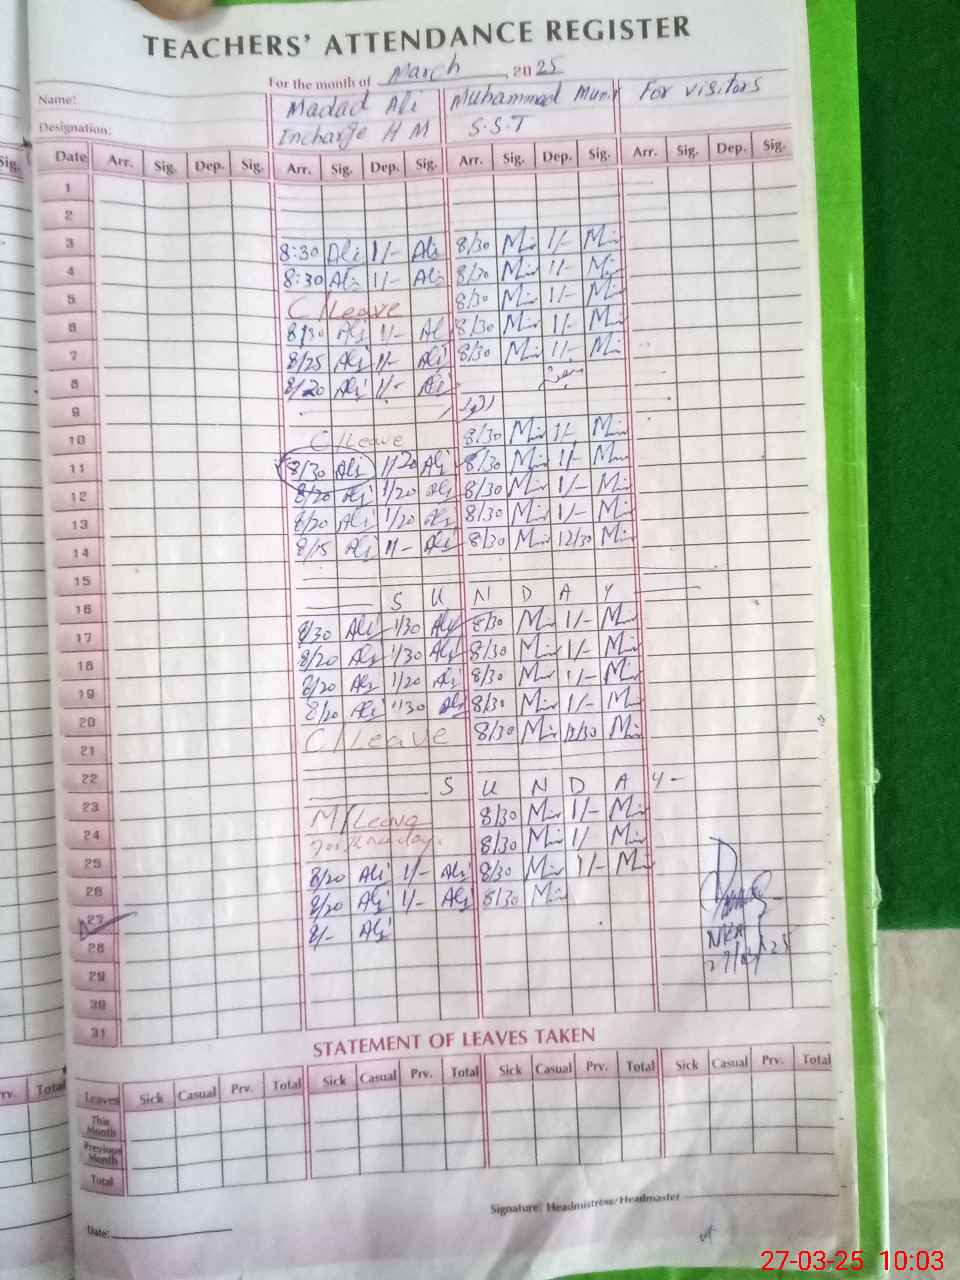 TEACHERS' ATTENDANCE REGISTER
For the month of March, 2025
Name: Madad Ali Muhammad Munir For visitors
Designation: Incharge H M S.S.T
Date Arr. Sig. Dep. Sig. Arr. Sig. Dep. Sig. Arr. Sig. Dep. Sig. Arr. Sig. Dep. Sig.
1
2
3 8:30 Ali 1/- Ali 8/30 Mir 1/- Mir
4 8:30 Ali 1/- Ali 8/30 Mir 1/- Mir
5 C/Leave 8/30 Mir 1/- Mir
6 8/30 Ali 1/- Ali 8/30 Mir 1/- Mir
7 8/25 Ali 1/- Ali 8/30 Mir 1/- Mir
8 8/20 Ali 1/- Ali
9 اتوار
10 C/Leave 8/30 Mir 1/- Mir
11 8/30 Ali 1/20 Ali 8/30 Mir 1/- Mir
12 8/20 Ali 1/20 Ali 8/30 Mir 1/- Mir
13 8/20 Ali 1/20 Ali 8/30 Mir 1/- Mir
14 8/15 Ali 1/- Ali 8/30 Mir 12/30 Mir
15
16 S U N D A Y
17 8/30 Ali 1/30 Ali 8/30 Mir 1/- Mir
18 8/20 Ali 1/30 Ali 8/30 Mir 1/- Mir
19 8/20 Ali 1/20 Ali 8/30 Mir 1/- Mir
20 8/20 Ali 1/30 Ali 8/30 Mir 1/- Mir
21 C/Leave 8/30 Mir 12/30 Mir
22
23 S U N D A Y
24 M/Leave 8/30 Mir 1/- Mir
25 8/30 Mir 1/ Mir
26 8/20 Ali 1/- Ali 8/30 Mir 1/- Mir
27 8/20 Ali 1/- Ali 8/30 Mir
28 8/- Ali
29
30
31
27/03/25
STATEMENT OF LEAVES TAKEN
Leaves Sick Casual Prv. Total Sick Casual Prv. Total Sick Casual Prv. Total Sick Casual Prv. Total
This Month
Previous Month
Total
Signature: Headmistress/Headmaster
Date:
27-03-25 10:03